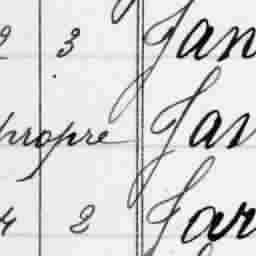 2 3 Jan
propre Jan
4 2 Jar